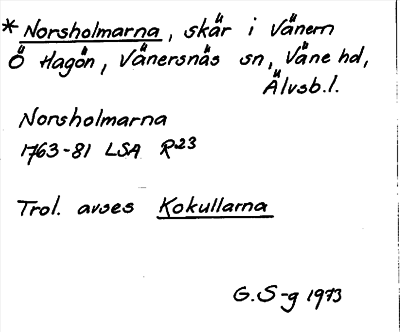 * Norsholmarna, skär i Vänern
Ö Hagön, Vänersnäs sn, Väne hd,
Älvsb.l.
Norsholmarna
1763-81 LSA R23
Trol. avses Kokullarna
G.S-g 1973